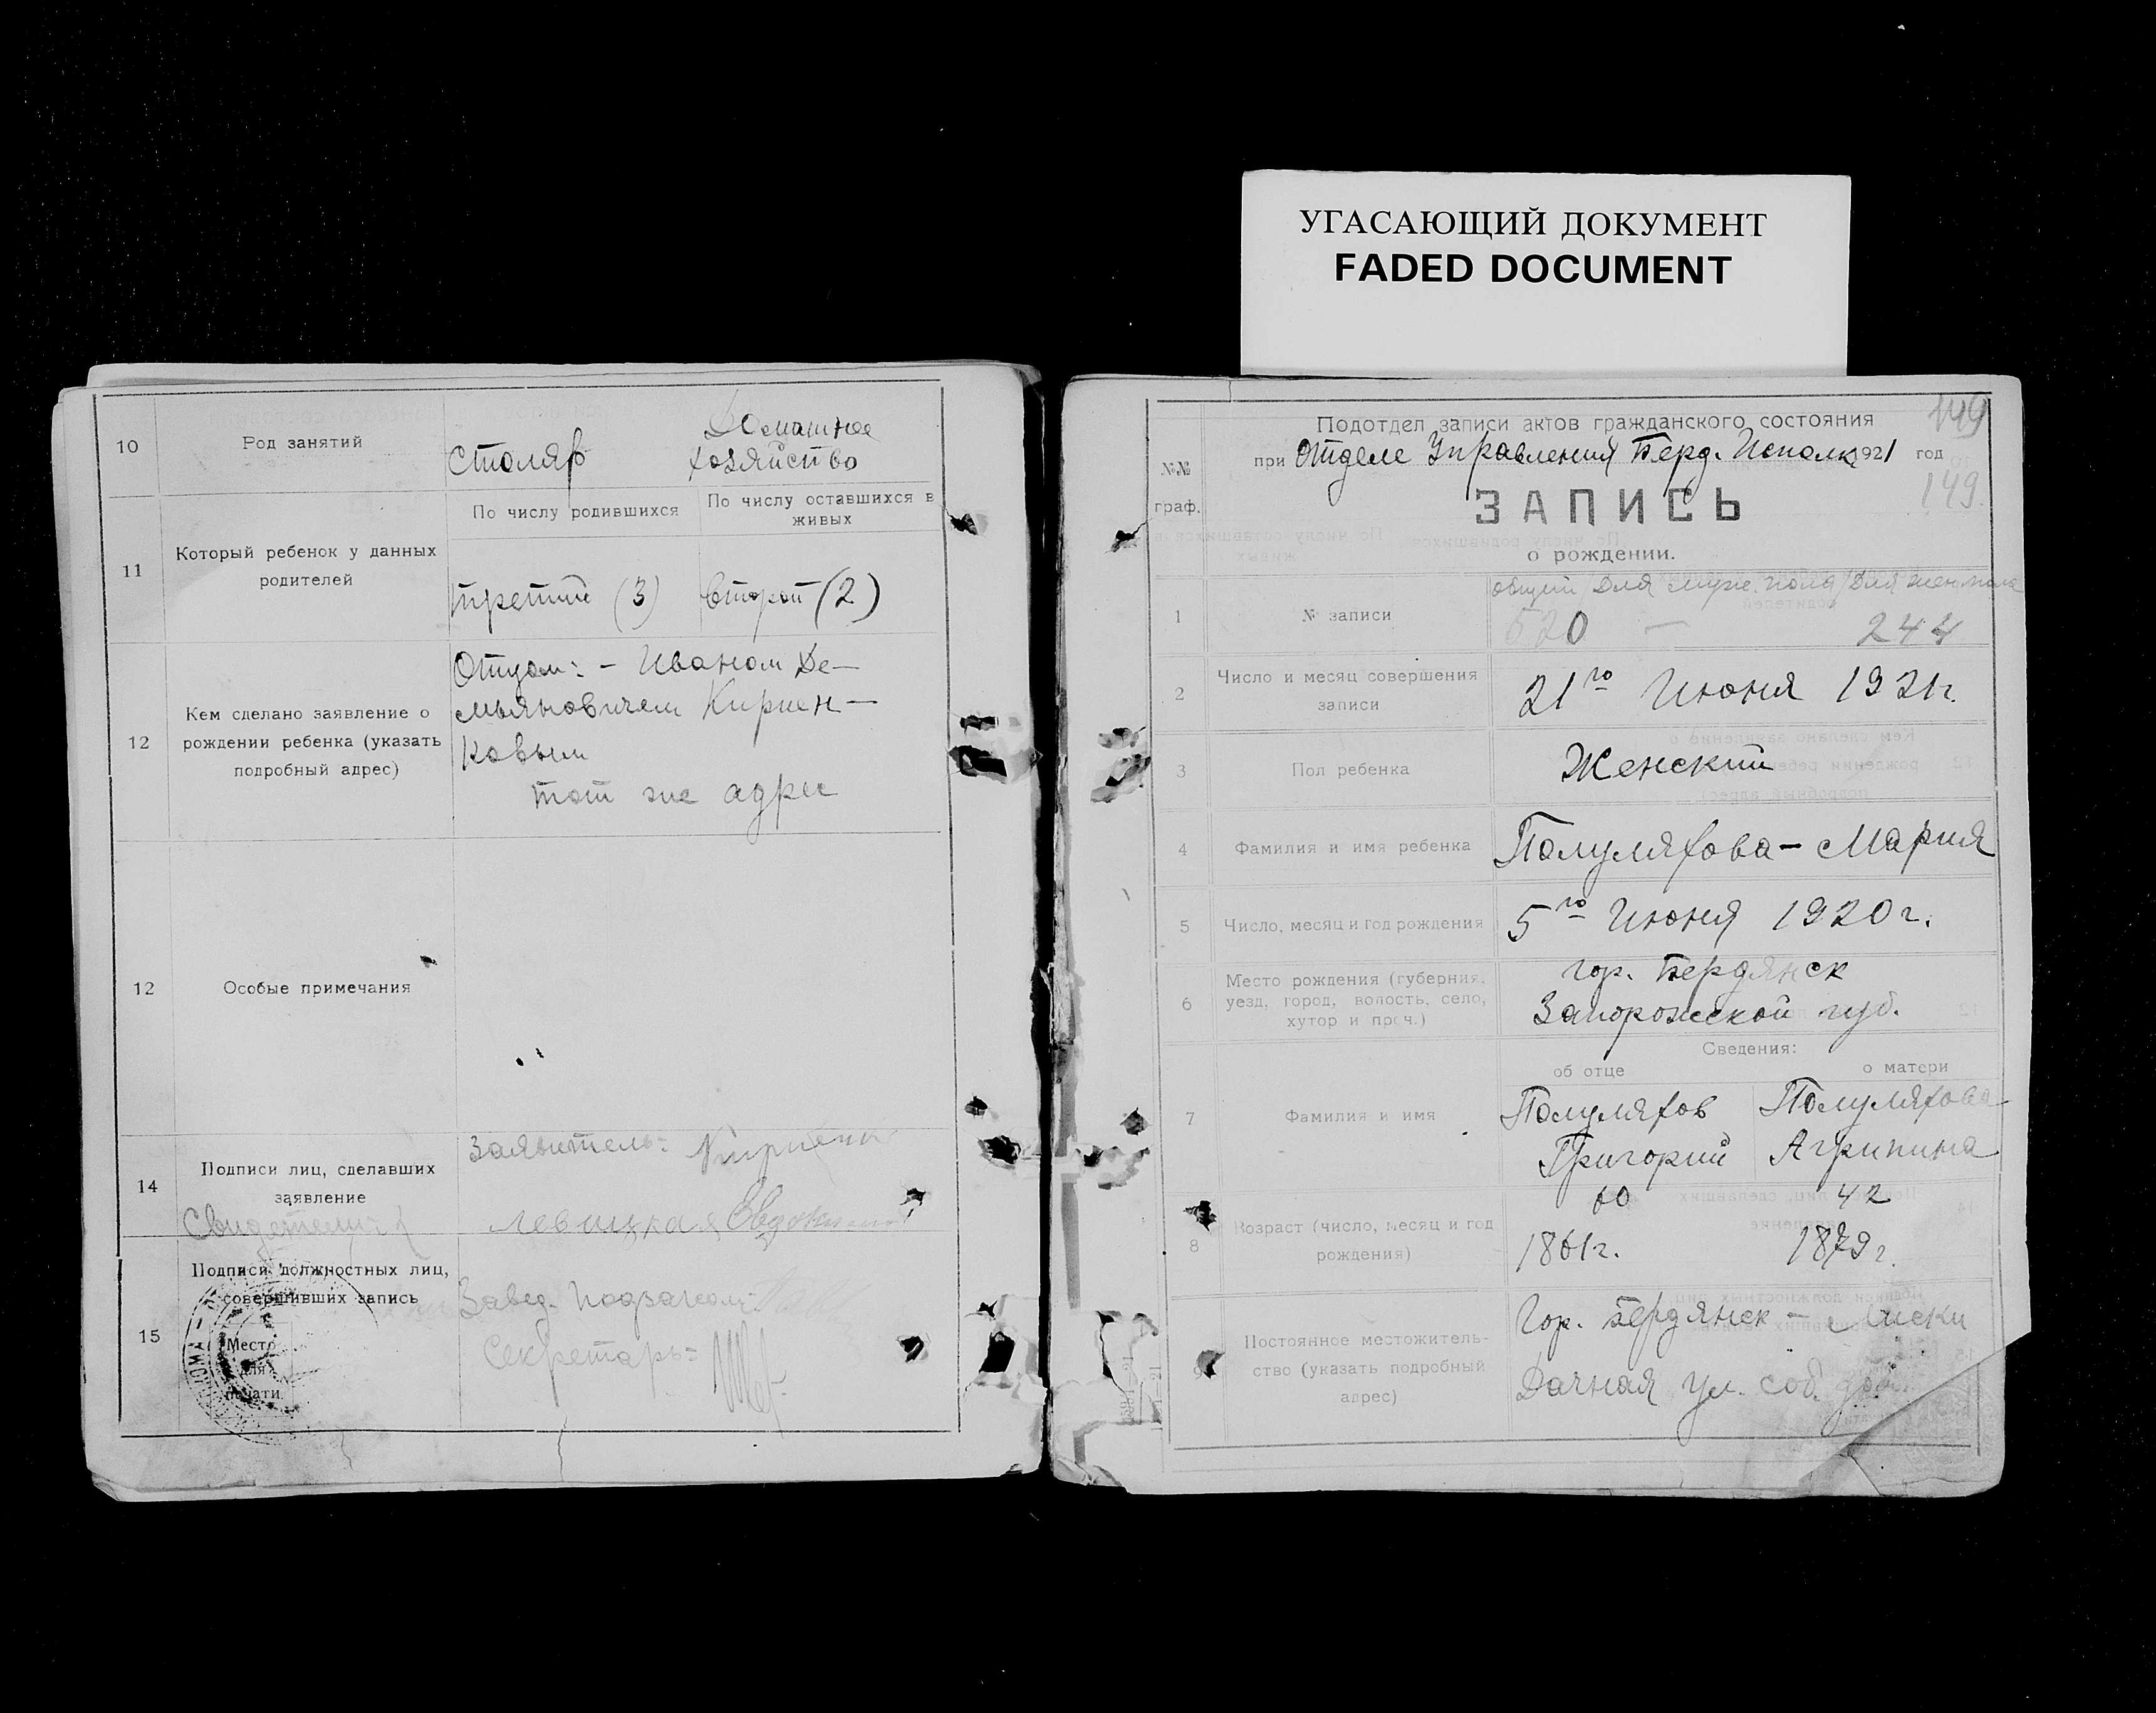 УГАСАЮЩИЙ ДОКУМЕНТ
FADED DOCUMENT
10
Род занятий
Столяр
Домашнее
хозяйство
11
Который ребенок у данных
родителей
По числу родившихся
По числу оставшихся в
живых
третий (3)
второй (2)
12
Кем сделано заявление о
рождении ребенка (указать
подробный адрес)
Отцом: - Иваном Де-
мьяновичем Кириен-
ковым
тот же адрес
12
Особые примечания
14
Подписи лиц, сделавших
заявление
Свидетели
Заявитель:
Левицкая
15
Подписи должностных лиц,
совершивших запись
Место
для
печати
Завед.
Секретарь
149
Подотдел записи актов гражданского состояния
при Отделе Управления Берд. Исполк. 1921 год
149.
№№
граф.
ЗАПИСЬ
о рождении.
1
№ записи
общий / Для муж. пола / Для жен. пола
520 — 244
2
Число и месяц совершения
записи
21го Июня 1921г.
3
Пол ребенка
Женский
4
Фамилия и имя ребенка
Полуляхова - Мария
5
Число, месяц и год рождения
5го Июня 1920 г.
6
Место рождения (губерния,
уезд, город, волость, село,
хутор и проч.)
гор. Бердянск
Запорожской губ.
Сведения:
об отце
о матери
7
Фамилия и имя
Полуляхов
Григорий
Полуляхова
Агрипина
8
Возраст (число, месяц и год
рождения)
60
1861г.
42
1879г.
9
Постоянное местожитель-
ство (указать подробный
адрес)
Гор. Бердянск - Лиски
Дачная ул. соб. дом.